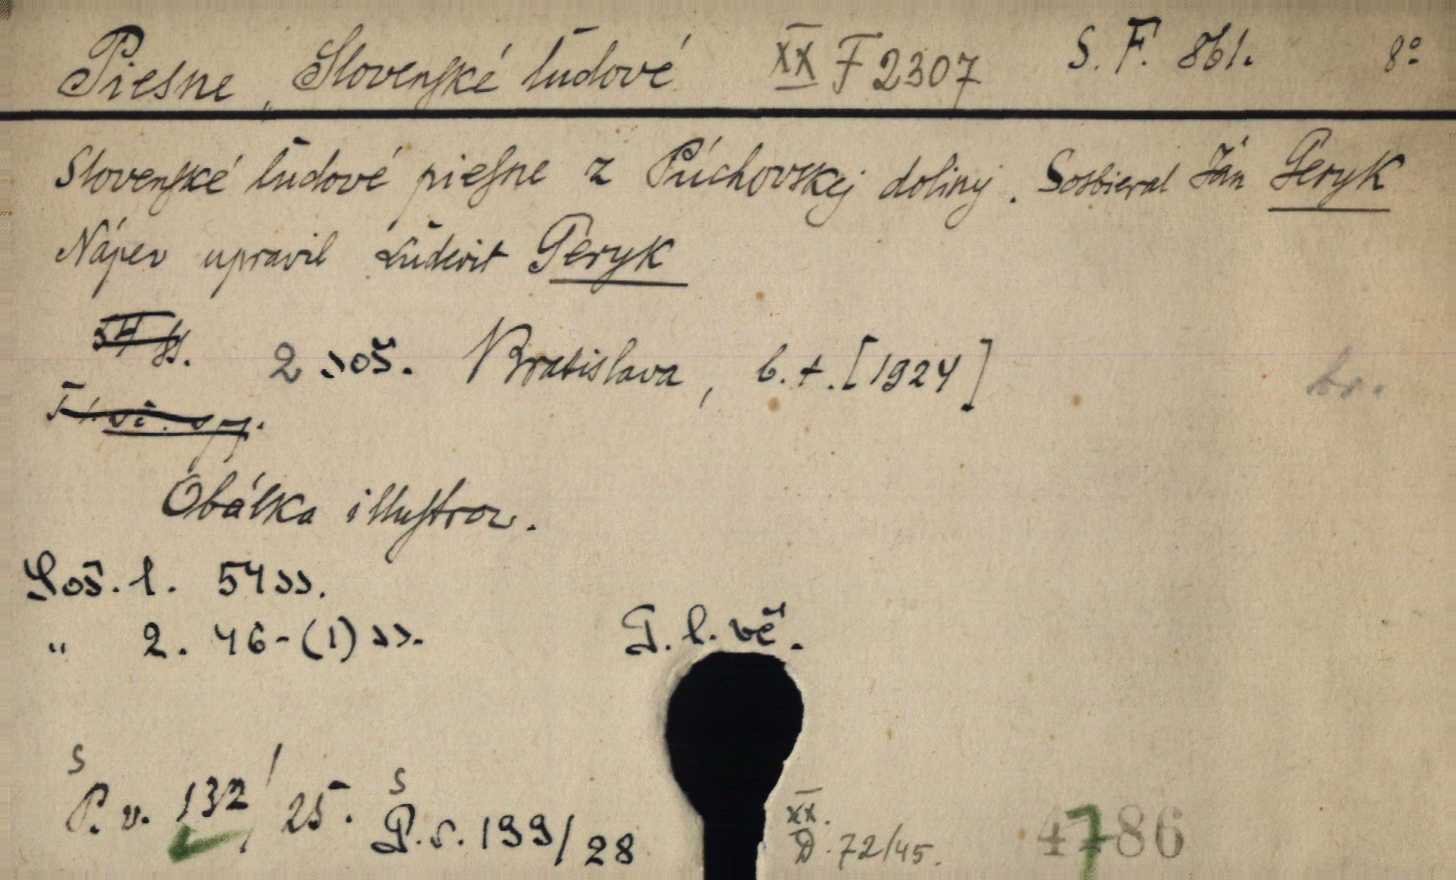 Piesne, Slovenské ľudové XX F 2307 S. F. 861. 8°
Slovenské ľudové piesne z Púchovskej doliny. Sosbieral Ján Geryk
Nápev upravil Ľudevit Geryk
54 s. 2 soš. Bratislava, b. t. [1924] br.
Obálka illustrov.
Soš. 1. 54 ss.
" 2. 46-(1) ss.
P. l. vě.
S P. v. 132/25. S P. v. 199/28
XX. D. 72/45. 4786